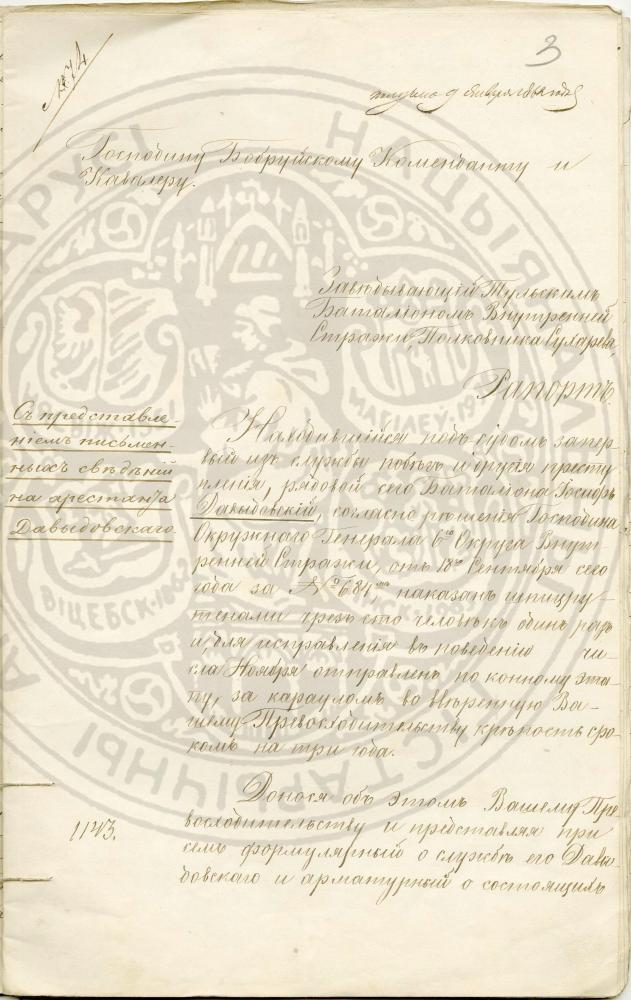 № 74
3
Господину Бобруйскому Коменданту и
Кавалеру.
Завѣдывающій Тульскимъ
Баталіономъ Внутренней
Стражи, Полковника Сухарева,
Рапортъ.
Съ представле-
ніемъ письмен-
ныхъ свѣдѣній
на арестанта
Давыдовскаго.
Находившійся подъ судомъ за пер-
вый изъ службы побѣгъ и другія престу
пленія, рядовой сего Баталіона Іосифъ
Давыдовскій, согласно рѣшенія Господина
Окружнаго Генерала 6го Округа Внут-
ренней Стражи, отъ 18го Сентября сего
года за № 684мъ наказанъ шпицру-
тенами чрезъ сто человѣкъ одинъ разъ
и, для исправленія въ поведеніи чи-
сла Ноября отправленъ по конному эта-
пу, за карауломъ во ввѣренную Ва-
шему Превосходительству крѣпость сро-
комъ на три года.
1143.
Донося объ этомъ Вашему Пре-
восходительству и представляя при
семъ формулярный о службѣ его Давы-
довскаго и арматурный о состоящихъ
НАЦЫЯНАЛЬНЫ
ГІСТАРЫЧНЫ
БЕЛАРУСІ
ВІЦЕБСК·1862
МАГІЛЕЎ·19